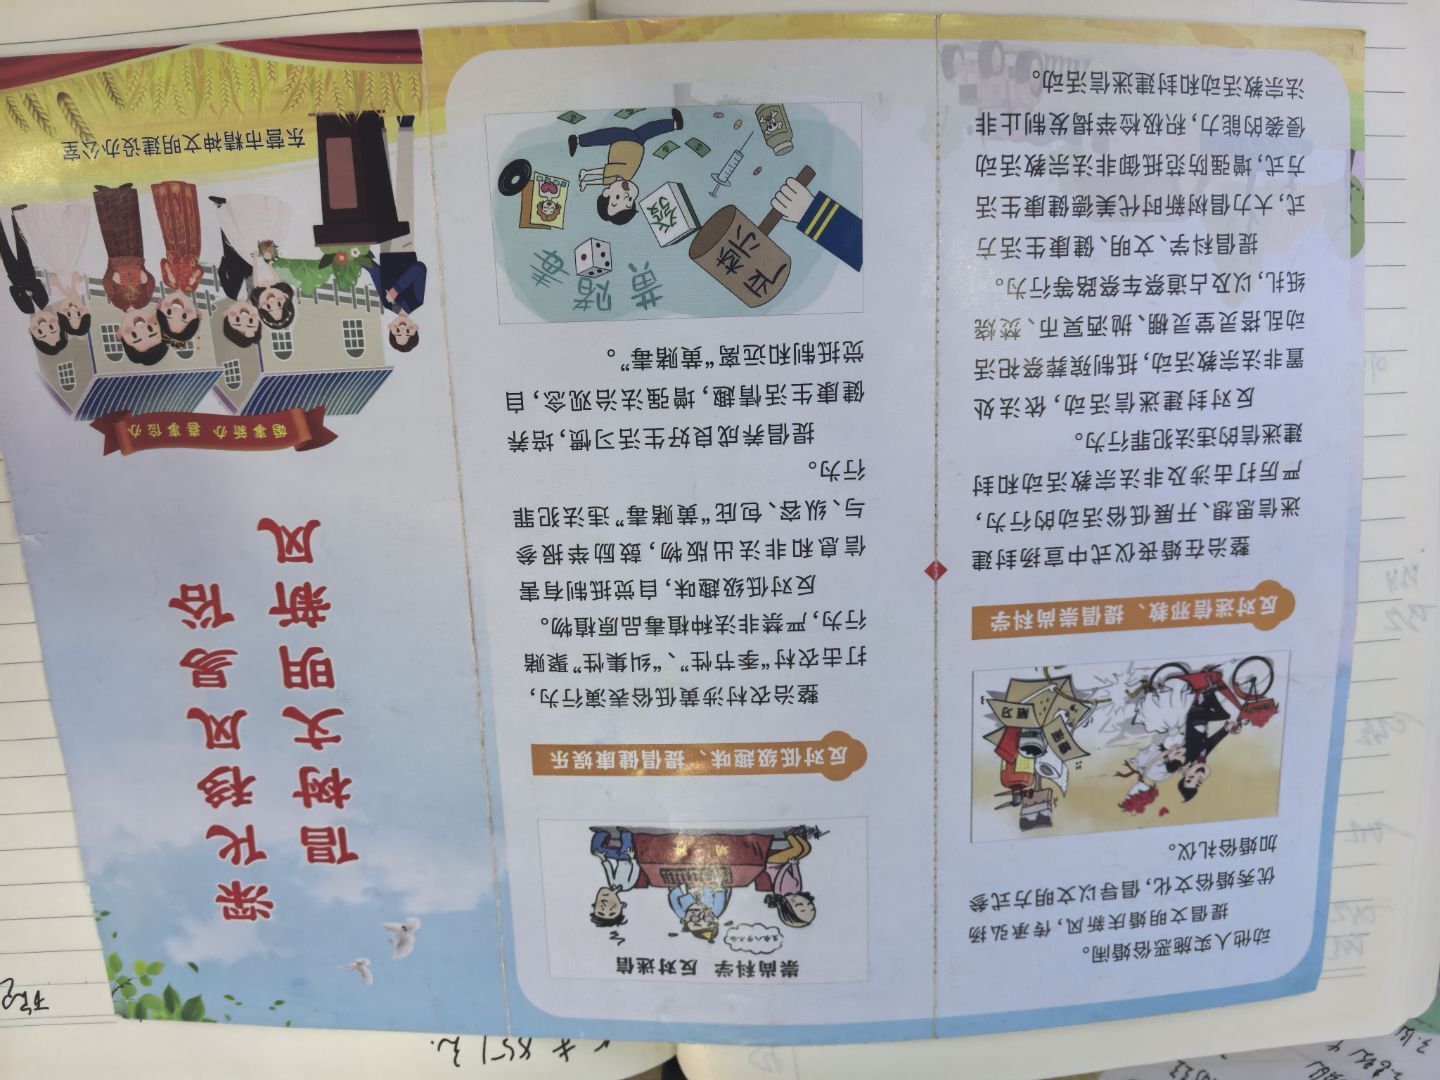 动他人实施恶俗婚闹。
提倡文明婚庆新风，传承弘扬
优秀婚俗文化，倡导以文明方式参
加婚俗礼仪。
反对迷信邪教、提倡崇尚科学
整治在婚丧仪式中宣扬封建
迷信思想、开展低俗活动的行为，
严厉打击涉及非法宗教活动和封
建迷信的违法犯罪行为。
反对封建迷信活动，依法处
置非法宗教活动，抵制殡葬祭祀活
动乱搭灵堂灵棚、抛洒冥币、焚烧
纸扎，以及占道祭车祭路等行为。
提倡科学、文明、健康生活方
式，大力倡树新时代美德健康生活
方式，增强防范抵御非法宗教活动
侵袭的能力，积极检举揭发制止非
法宗教活动和封建迷信活动。
崇尚科学 反对迷信
反对低级趣味、提倡健康娱乐
整治农村涉黄低俗表演行为，
打击农村“季节性”、“纠集性”聚赌
行为，严禁非法种植毒品原植物。
反对低级趣味，自觉抵制有害
信息和非法出版物，鼓励举报参
与、纵容、包庇“黄赌毒”违法犯罪
行为。
提倡养成良好生活习惯，培养
健康生活情趣，增强法治观念，自
觉抵制和远离“黄赌毒”。
严禁
黄
赌
毒
發
深化移风易俗
倡树文明新风
婚事新办 喜事俭办
东营市精神文明建设办公室